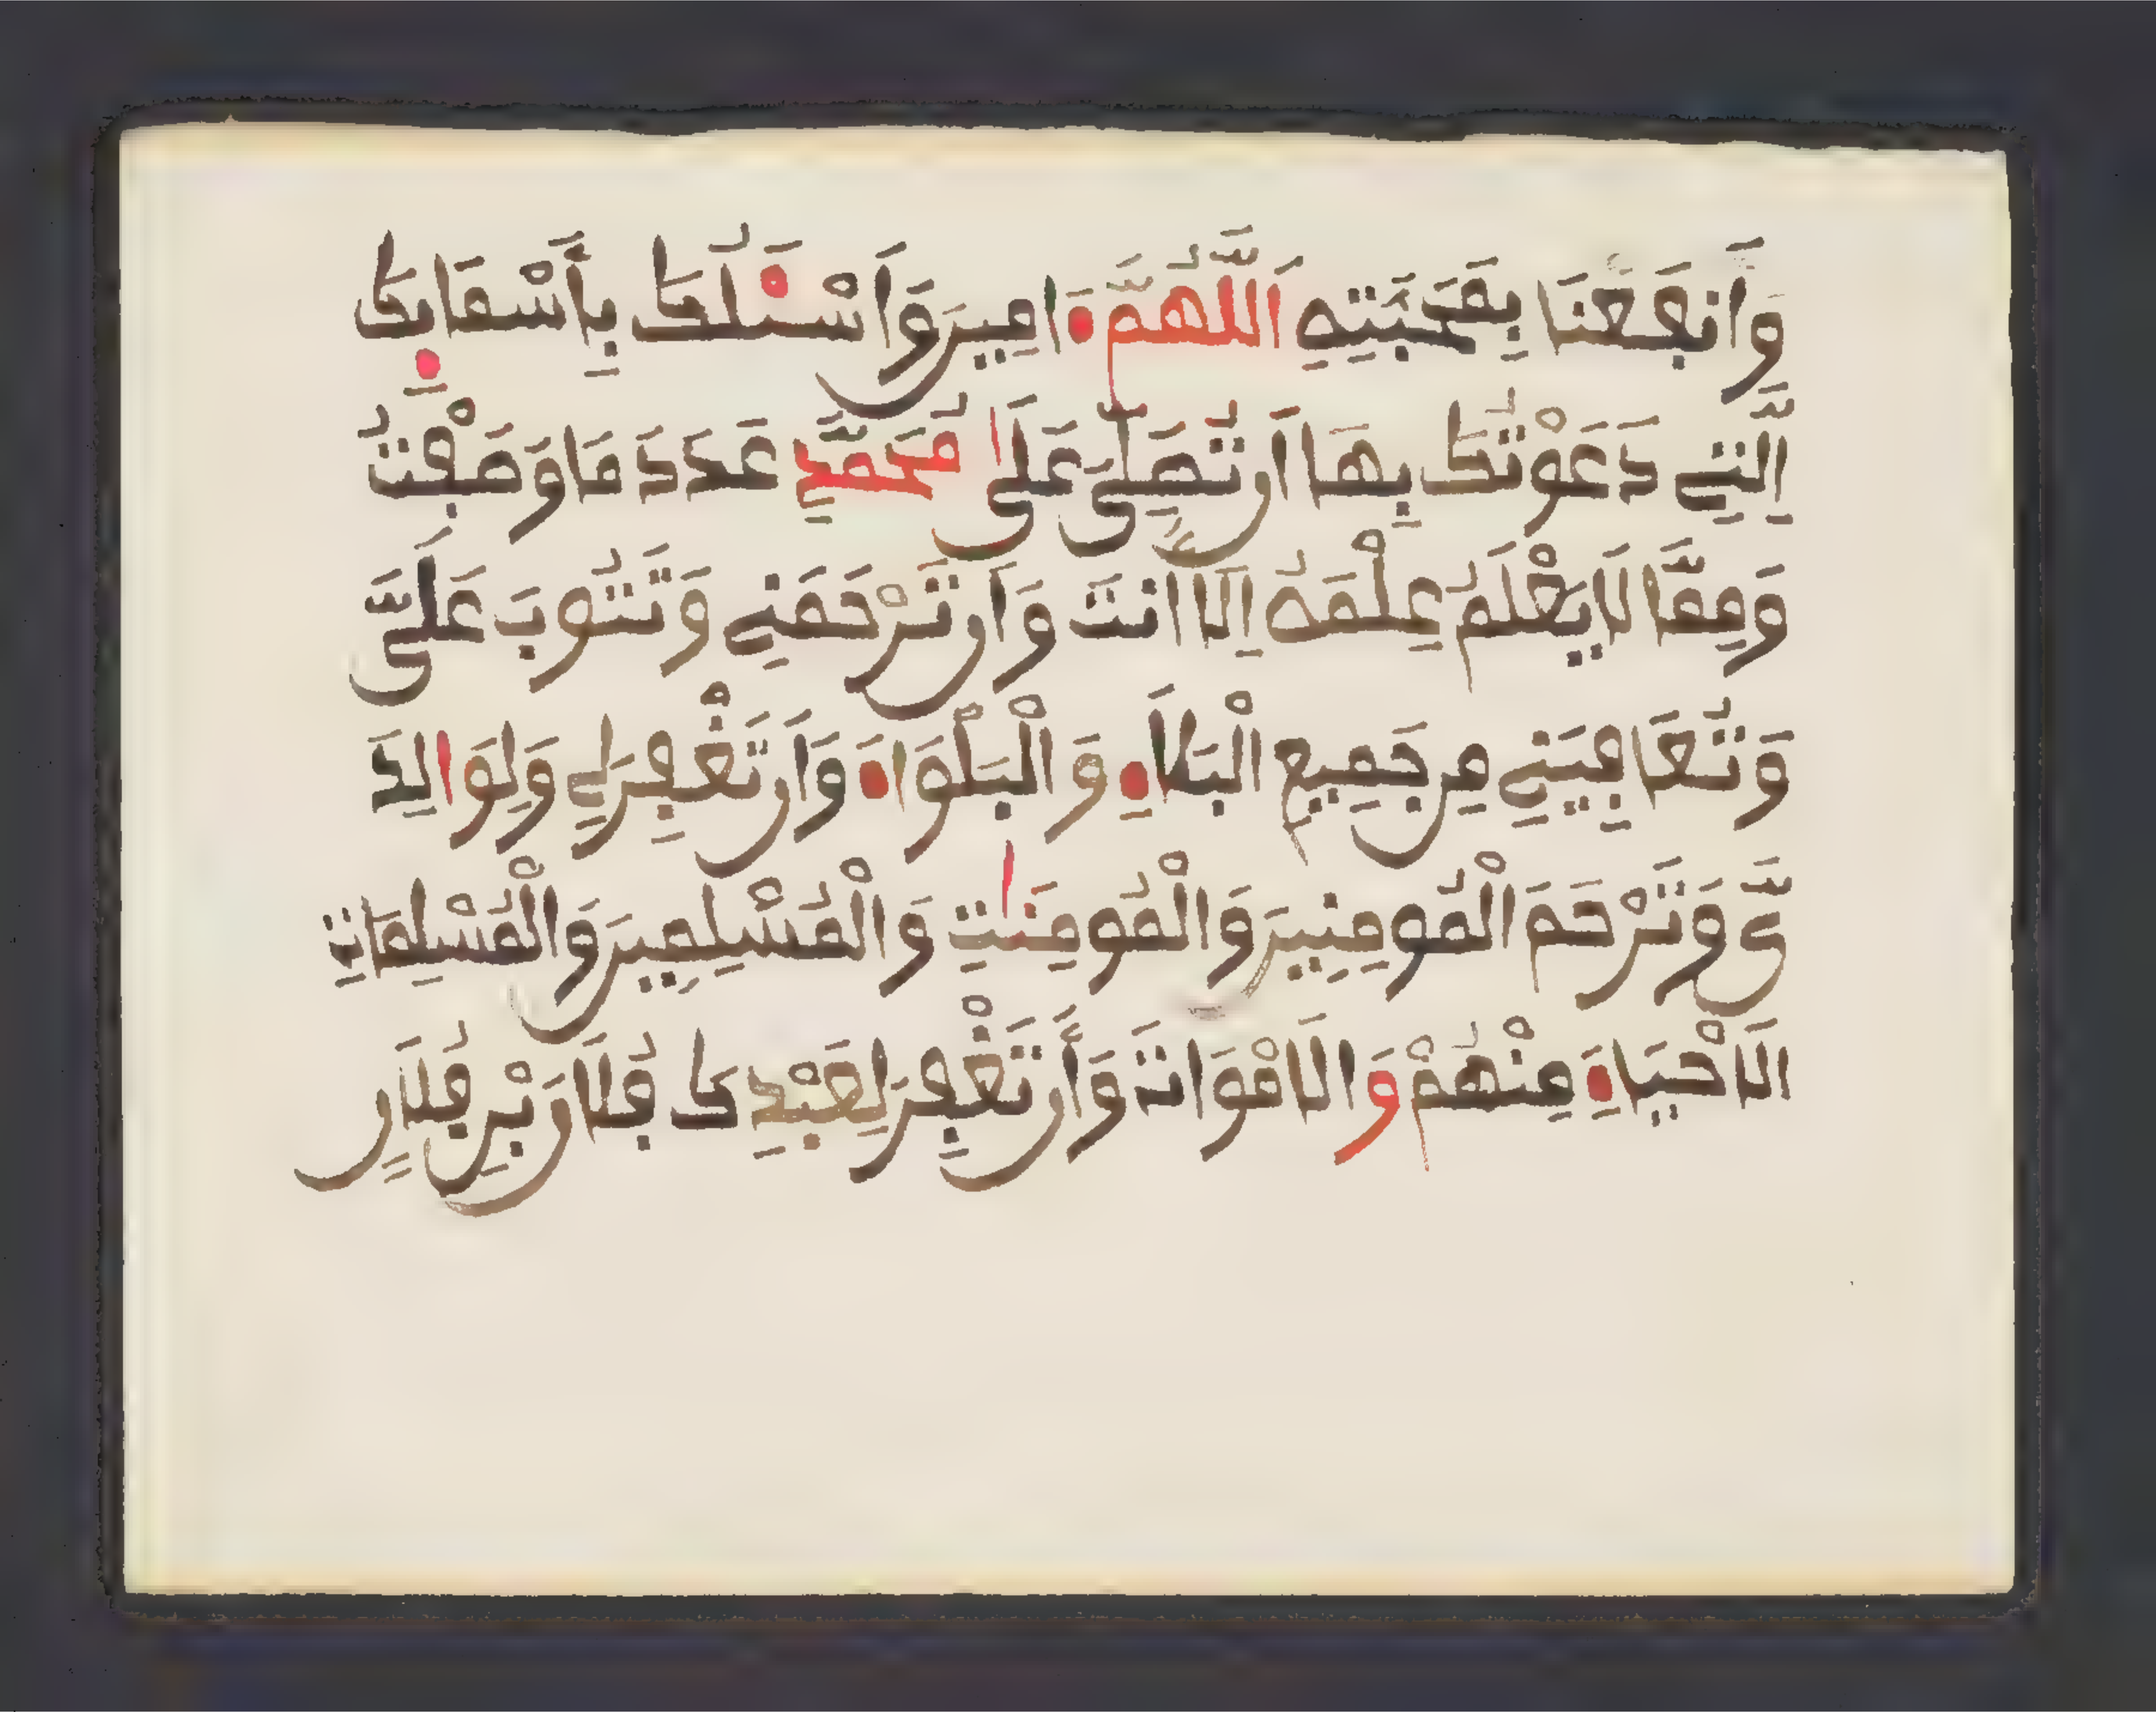 وَانفَعْنَا بِمَحَبَّتِهِ اَللَّهُمَّ ءَامِينَ وَأَسْـَٔلُكَ بِأَسْمَائِكَ
اِلَّتِي دَعَوْتُكَ بِهَا أَن تُصَلِّيَ عَلَى مُحَمَّدٍ عَدَدَ مَا وَصَفْتُ
وَمِمَّا لَا يَعْلَمُ عِلْمَهُ إِلَّا انتَ وَأَن تَرْحَمَنِي وَتَتُوبَ عَلَيَّ
وَتُعَافِيَنِي مِن جَمِيعِ الْبَلَاءِ وَالْبَلْوَاءَ وَأَن تَغْفِرَ لِي وَلِوَالِدَ
يَّ وَتَرْحَمَ الْمُومِنِينَ وَالْمُومِنَٰتِ وَالْمُسْلِمِينَ وَالْمُسْلِمَاتِ
الَاحْيَاءِ مِنْهُمْ وَالَامْوَاتَ وَأَن تَغْفِرَ لِعَبْدِكَ فُلَانَ بْنِ فُلَانٍ